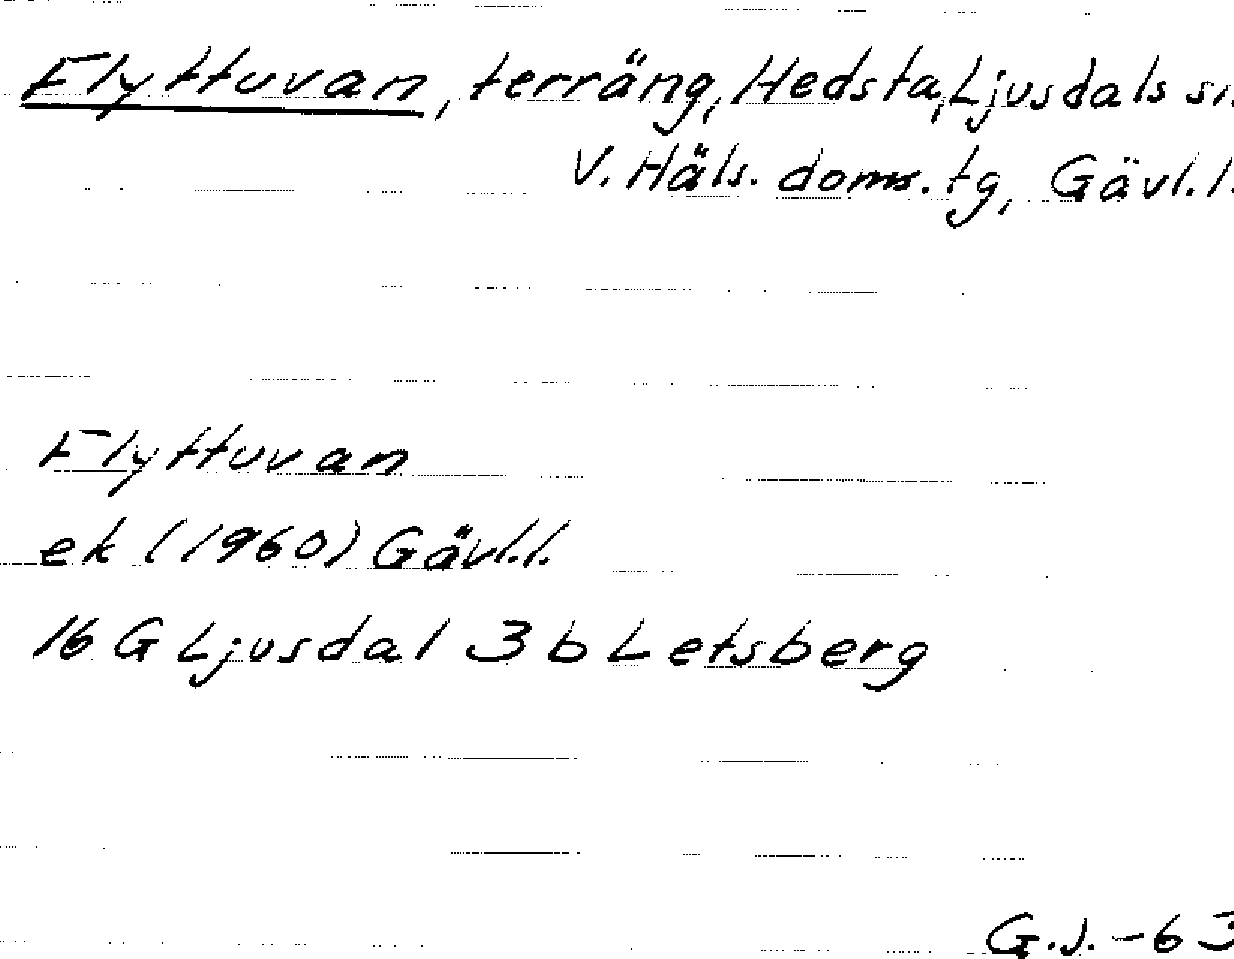 Flyttuvan, terräng, Hedsta, Ljusdals sn
V. Häls. doms.tg, Gävl.l.
Flyttuvan
ek (1960) Gävl.l.
16 G Ljusdal 3 b Letsberg
G.J. -63